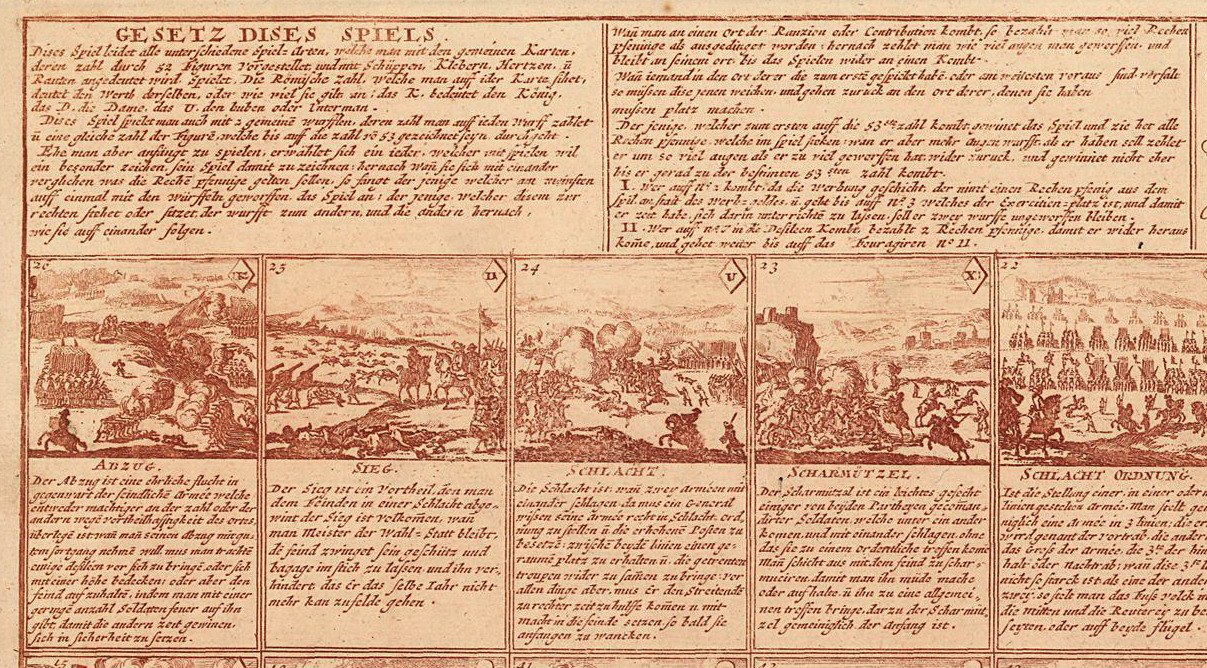 GESETZ DISES SPIELS.
Dises Spiel leidet alle unterschiedne Spiel Arten, welche man mit den gemeinen Karten,
deren zahl durch 52 Figuren Vorgestellet und mit Schüppen, Klebern, Hertzen, ü
Rauten angedeutet wird Spielet. Die Römische Zahl, Welche man auff ider Karte sihet,
deutet den Werth derselben, oder wie viel sie giltn an: das K. bedeutet den König,
das D. die Dame, das U. den buben oder Unterman.
Dises Spiel spielet man auch mit 2 gemeinē wurfflen, deren zahl man auff ieden Wurff zählet
ü eine gleiche zahl der Figurē welche bis auff die zahl vō 53 gezeichnet seyn, durchgeht.
Ehe man aber anfängt zu spielen, erwählet sich ein ieder, welcher mit spielen wil
ein besonder zeichen, sein Spiel damit zu zeichnen: hernach Wañ sie sich mit einander
verglichen was die Rechē pfennige gelten sollen, so fängt der jenige welcher am
auff einmal mit den würffeln geworffen, das Spiel an: der jenige, welcher disem zur
rechten stehet oder sitzet, der wurfft zum andern, und die andern hernach,
wie sie auff einander folgen.
Wañ man an einen Ort der Ranzion oder Contribution kombt, so bezahlt man so viel Rechen
pfennige als ausgedinget worden: hernach zehlet man wie viel augen man geworffen, und
bleibt an seinem ort bis das Spielen wider an einen Kombt.
Wañ iemand in den Ort derer die zum erste gespielet habē oder am weitesten voraus sind
so müssen dise jenen weichen, und gehen zurück an den Ort derer, denen sie haben
müssen platz machen.
Der jenige, welcher zum ersten auff die 53ste zahl kombt, gewinet das Spiel, und zie het alle
Rechen pfennige, welche im spiel steken: wan er aber mehr augen wurfft, als er haben soll zehlet
er um so viel augen als er zu viel geworffen hat, wider zuruck, und gewiniet nicht eher
bis er gerad zu der bestimten 53sten zahl kombt.
I. Wer auff No. 2 kombt, da die Werbung geschicht, der nimt einen Rechen pfenig aus dem
spil, an statt des Werb-geldes, ü geht bis auff no. 3 welches der Exercitien-platz ist, und damit
er zeit habe, sich darin unterrichtē zu lassen, soll er zwey wurffe ungeworffen bleiben.
II. Wer auff no. 7 in die Defileen Kombt, bezahlt 2 Rechen pfennige, damit er wider heraus
kome, und gehet weiter bis auff das Fouragiren no 11.
26 K
25 D
24 U
23 X
22
ABZUG.
Der Abzug ist eine ehrliche flucht in
gegenwart der feindlichē Armee welche
entweder machtiger an der zahl oder der
andern wegē vortheilhafftigkeit des ortes,
überlegē ist: wañ man seinen abzug mit gu,
ten fortgang nehmē will, mus man trachtē
einige defileen vor sich zu bringē, oder sich
mit einer höhe bedeken: oder aber den
feind auffzuhaltē, indem man mit einer
geringē anzahl Soldatēn feuer auf ihn
gibt, damit die andern zeit gewinen,
sich in sicherheit zu setzen.
SIEG.
Der Sieg ist ein Vortheil, den man
dem Feinden in einer Schlacht abge-
wint der Sieg ist volkomen, wañ
man Meister der Wahl-Statt bleibt,
dē feind zwinget sein geschütz und
bagage im stich zu lassen und ihn ver,
hindert, das Er das selbe Iahr nicht
mehr kan zu felde gehen.
SCHLACHT.
Die Schlacht ist, wañ zwey arméen mit
einander schlagen, da mus ein General
wissen seine armée recht in Schlacht-ord,
nung zu stellen ü die erhöhenē Posten zu
besetzē: zwischē beydē linien einen ge-
raumē platz zu erhalten ü die getrenten
troupen wider zu samen zu bringē: vor
allen dinge aber, mus Er den Streitendē
zu rechter zeit zu hülffe komen ü mit-
macht in die feinde setzen, so bald sie
anfangen zu wancken.
SCHARMÜTZEL.
Der Scharmützel ist ein leichtes gefecht
einiger von beyden Partheyen gecoman,
dirter Soldaten, welche unter ein ander
komen, und mit einander schlagen, ohne
das sie zu einem ordentlichē treffen komē
Mañ schickt aus mit dem feind zu schar-
muciren, damit man ihn müde mache
oder auf halte, ü ihn zu eine allgemei,
nen treffen bringe, darzu der Scharmüt,
zel gemeiniglich der anfang ist.
SCHLACHT ORDNUNG.
Ist die Stellung einer, in einer oder
linien gestelten armée. Man stelt ge
niglich eine Armée in 3 linien: die er
wird genant der vortrab: die ander
das Gros der armée, die 3te der hin
halt oder nachtrab: wan dise 3te
nicht so starck ist als eine der ander
zwey: so stelt man das Fußvolck in
die mitten und die Reuterey zu be
seyten, oder auff beyde flügel.